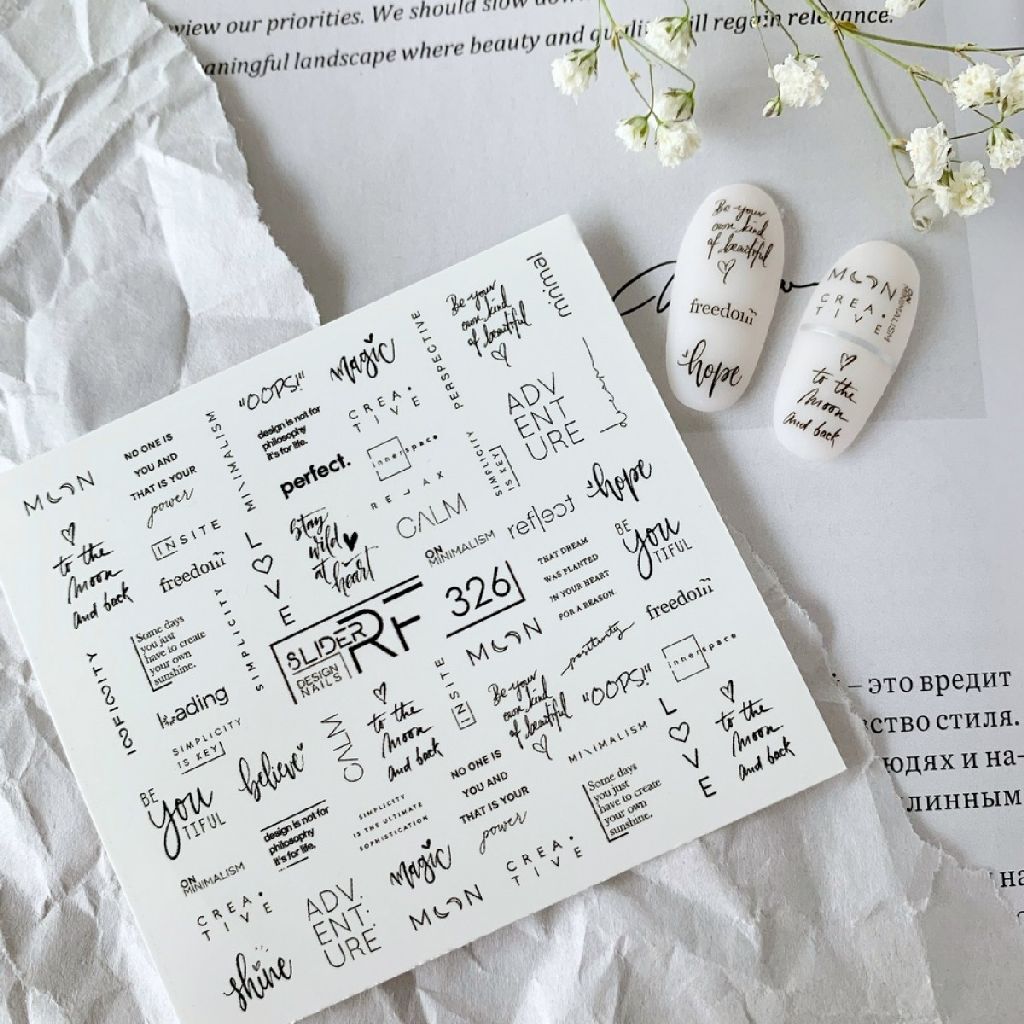 view our priorities. We should slow
meaningful landscape where beauty and will regain relevance.
minimal
Be your
own kind
of beautiful
PERSPECTIVE
magic
"OOPS!"
MINIMALISM
design is not for
philosophy
it's for life.
CREA.
TIVE
ADV.
ENT.
URE
perfect.
innerspace
SIMPLICITY
IS KEY
RELAX
NO ONE IS
YOU AND
THAT IS YOUR
power
MOON
to the
moon
and back
INSITE
freedom
LOVE
Stay
wild
at heart
CALM
reflect
hope
ON
MINIMALISM
BE
YOU
TIFUL
THAT DREAM
WAS PLANTED
IN YOUR HEART
FOR A REASON
Some days
you just
have to create
your own
sunshine.
SIMPLICITY
SLIDER RF
DESIGN
NAILS
326
MOON
freedom
innerspace
positivity
"OOPS!"
INSITE
Be your
own kind
of beautiful
to the
moon
and back
CALM
leading
SIMPLICITY
IS KEY
believe
BE
you
TIFUL
design is not for
philosophy
it's for life.
SIMPLICITY
IS THE ULTIMATE
SOPHISTICATION
NO ONE IS
YOU AND
THAT IS YOUR
power
MINIMALISM
LOVE
to the
moon
and back
Some days
you just
have to create
your own
sunshine.
ON
MINIMALISM
CREA.
TIVE
ADV.
ENT.
URE
magic
MOON
CREA.
TIVE
shine
Be your
own kind
of beautiful
freedom
hope
MOON
CREA.
TIVE
ON
MINIMALISM
to the
moon
and back
– это вредит
ство стиля.
юдях и на-
линным
на